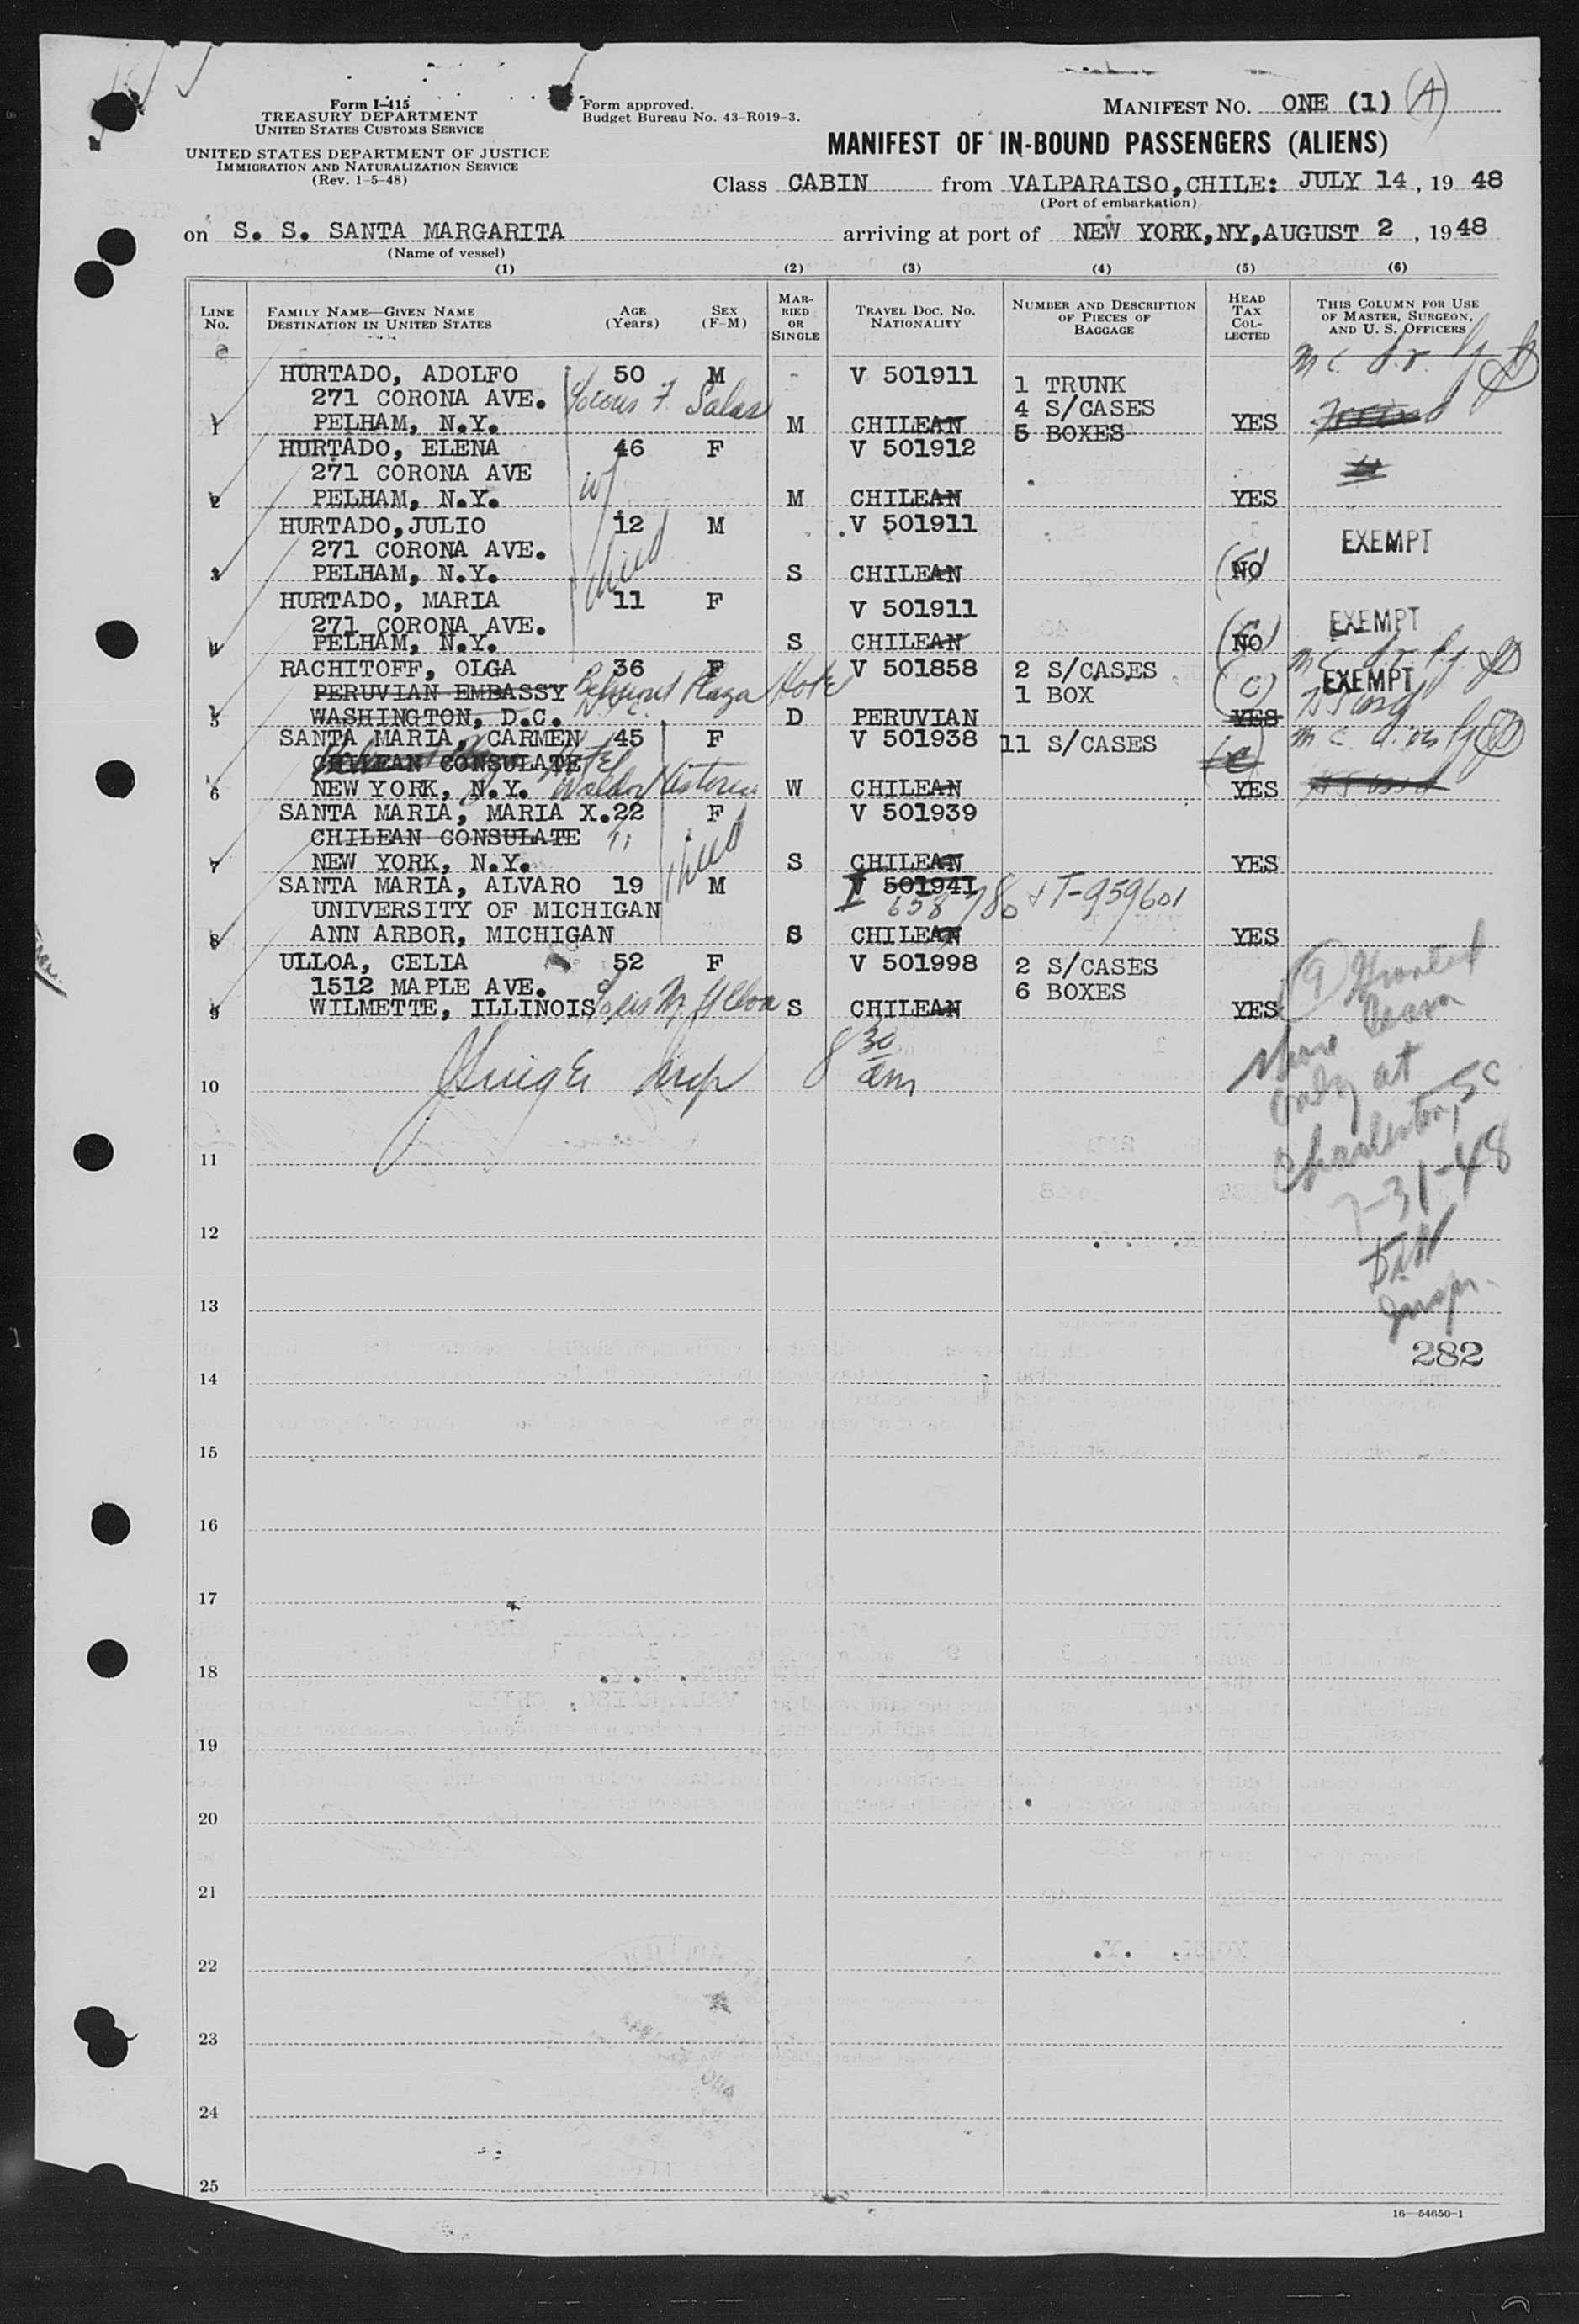 Form I-415
TREASURY DEPARTMENT
UNITED STATES CUSTOMS SERVICE
UNITED STATES DEPARTMENT OF JUSTICE
IMMIGRATION AND NATURALIZATION SERVICE
(Rev. 1-5-48)
Form approved.
Budget Bureau No. 43-R019-3.
MANIFEST NO. ONE (1) (A)
MANIFEST OF IN-BOUND PASSENGERS (ALIENS)
Class CABIN from VALPARAISO, CHILE: JULY 14, 19 48
(Port of embarkation)
on S. S. SANTA MARGARITA arriving at port of NEW YORK, NY, AUGUST 2, 19 48
(Name of vessel)
(1) (2) (3) (4) (5) (6)
LINE NO.
FAMILY NAME—GIVEN NAME
DESTINATION IN UNITED STATES
AGE (Years)
SEX (F-M)
MARRIED OR SINGLE
TRAVEL DOC. NO. NATIONALITY
NUMBER AND DESCRIPTION OF PIECES OF BAGGAGE
HEAD TAX COLLECTED
THIS COLUMN FOR USE OF MASTER, SURGEON, AND U. S. OFFICERS
HURTADO, ADOLFO 50 M V 501911 1 TRUNK
271 CORONA AVE. Salas 4 S/CASES
1 PELHAM, N.Y. M CHILEAN 5 BOXES YES
HURTADO, ELENA 46 F V 501912
271 CORONA AVE
2 PELHAM, N.Y. M CHILEAN YES
HURTADO, JULIO 12 M V 501911
271 CORONA AVE. child EXEMPT
3 PELHAM, N.Y. S CHILEAN NO
HURTADO, MARIA 11 F V 501911
271 CORONA AVE. EXEMPT
4 PELHAM, N.Y. S CHILEAN NO
RACHITOFF, OLGA 36 F V 501858 2 S/CASES
PERUVIAN EMBASSY Belmont Plaza Hotel 1 BOX EXEMPT
5 WASHINGTON, D.C. D PERUVIAN YES
SANTA MARIA, CARMEN 45 F V 501938 11 S/CASES
CHILEAN CONSULATE
6 NEW YORK, N.Y. Waldorf Astoria W CHILEAN YES
SANTA MARIA, MARIA X. 22 F V 501939
CHILEAN CONSULATE "
7 NEW YORK, N.Y. child S CHILEAN YES
SANTA MARIA, ALVARO 19 M V 501941
UNIVERSITY OF MICHIGAN 658780 & T-959601
8 ANN ARBOR, MICHIGAN S CHILEAN YES
ULLOA, CELIA 52 F V 501998 2 S/CASES
1512 MAPLE AVE. 6 BOXES
9 WILMETTE, ILLINOIS S CHILEAN YES
(9) Granted
shore leave
only at
Charleston, SC
7-31-48
Inspr.
8 30 am
10
11
12
13
282
14
15
16
17
18
19
20
21
22
23
24
25
16—54650-1